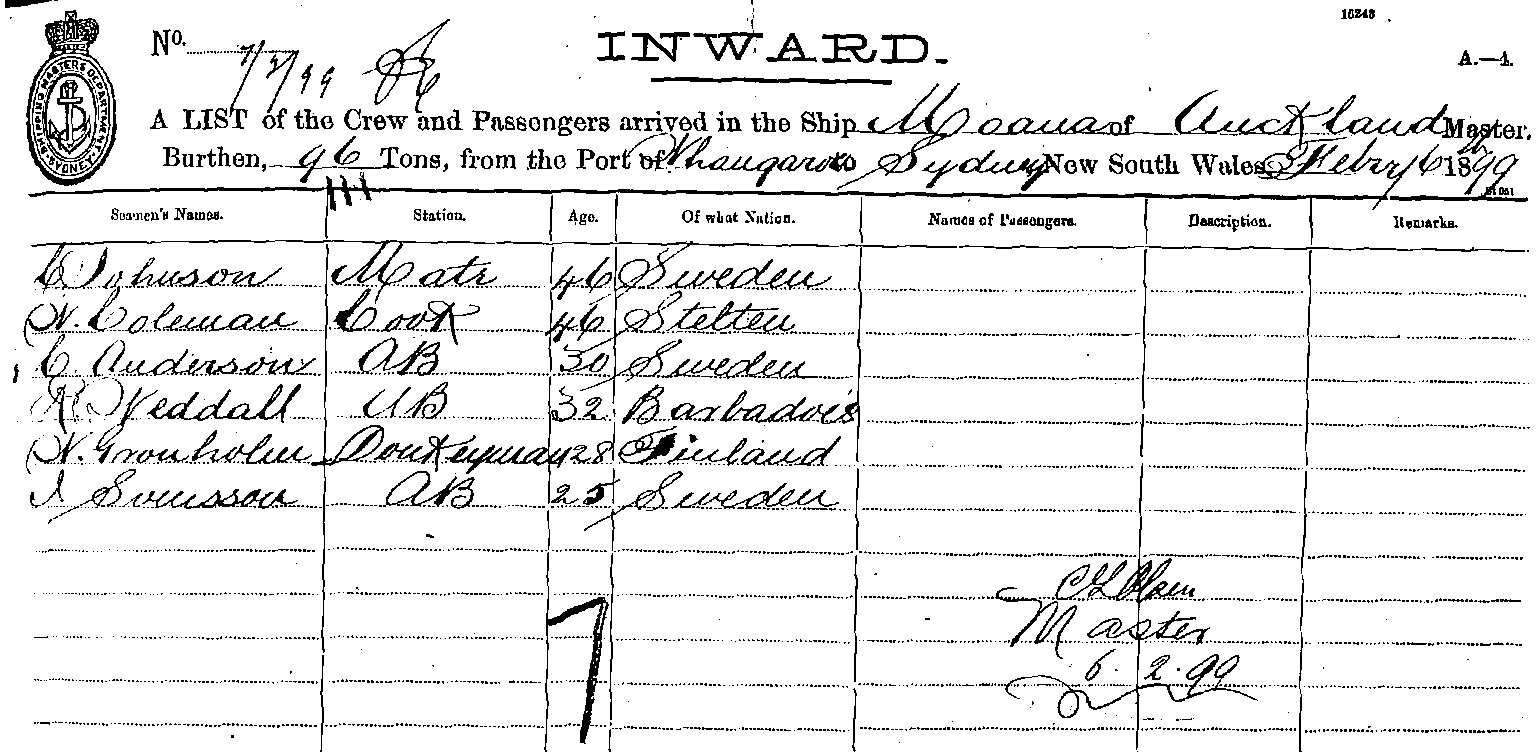 16243
No. 7/2/99
INWARD.
A.—4.
SHIPPING MASTERS DEPARTMENT SYDNEY
A LIST of the Crew and Passengers arrived in the Ship Moana of Auckland Master,
Burthen, 96 Tons, from the Port of Whangaroa to Sydney New South Wales, Febry 6th 1899
Seamen's Names. Station. Age. Of what Nation. Names of Passengers. Description. Remarks.
C Johnson Mate 46 Sweden
N. Coleman Cook 46 Stelten
C. Anderson AB 30 Sweden
Weddall AB 32 Barbadois
N. Gronholm Donkeyman 28 Finland
Svensson AB 25 Sweden
C L Olsen
Master
7
6. 2. 99